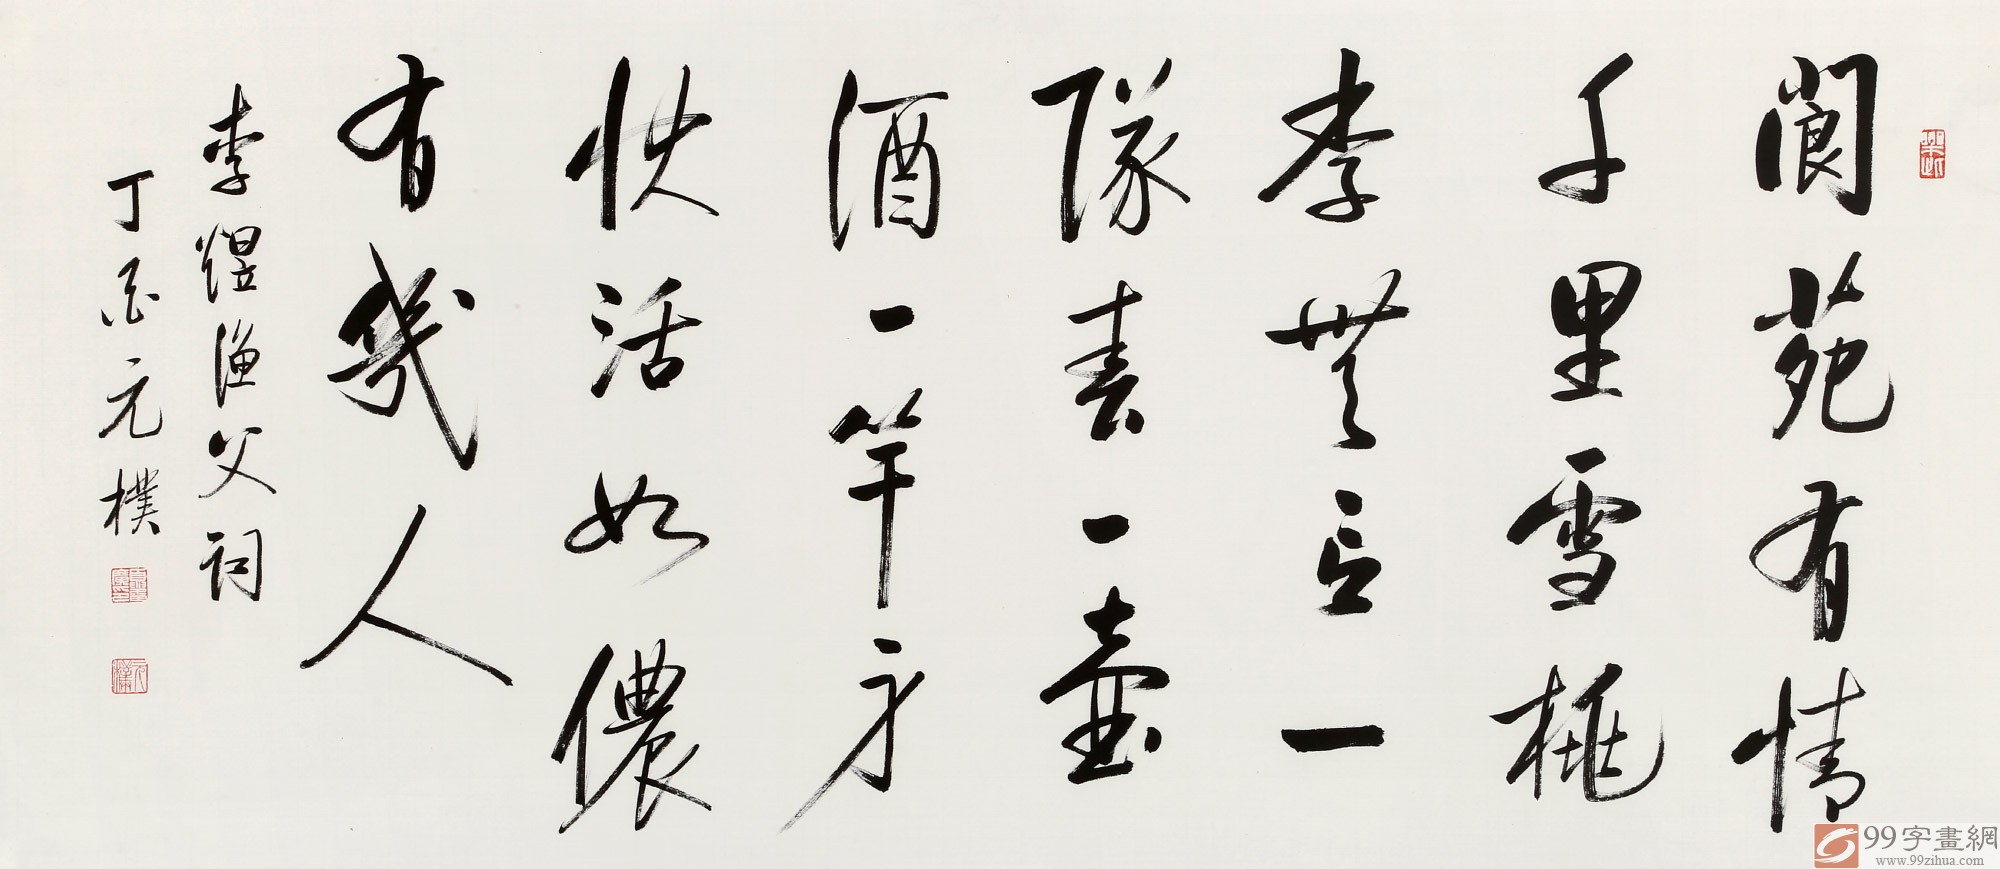 閬苑有情
千里雪桃
李無言一
隊春一壺
酒一竿身
快活如儂
有幾人
李煜漁父詞
丁酉元樸
99字畫網
www.99zihua.com